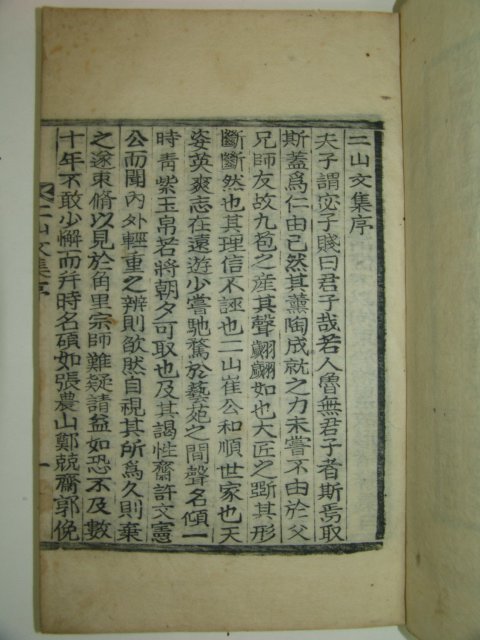 二山文集序
夫子謂宓子賤曰君子哉若人魯無君子者斯焉取
斯蓋爲仁由己然其薰陶成就之力未嘗不由於父
兄師友故九苞之産其聲翽翽如也大匠之斲其形
斷斷然也其理信不誣也二山崔公和順世家也天
姿英爽志在遠遊少嘗馳騖於藝苑之間聲名傾一
時靑紫玉帛若將朝夕可取也及其謁性齋許文憲
公而聞內外輕重之辨則欿然自視其所爲久則棄
之遂束脩以見於角里宗師難疑請益如恐不及數
十年不敢少懈而幷時名碩如張農山鄭兢齋郭俛
二山文集序 一